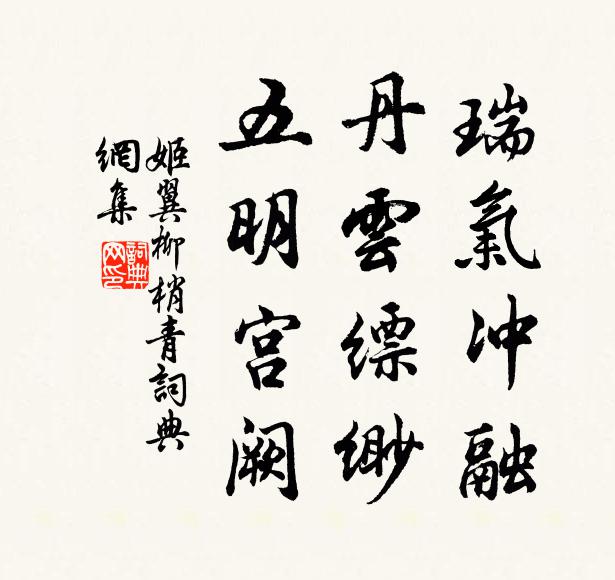 瑞氣冲融
丹雲縹緲
五明宫阙
姬翼柳梢青詞典
網集
詞典網印